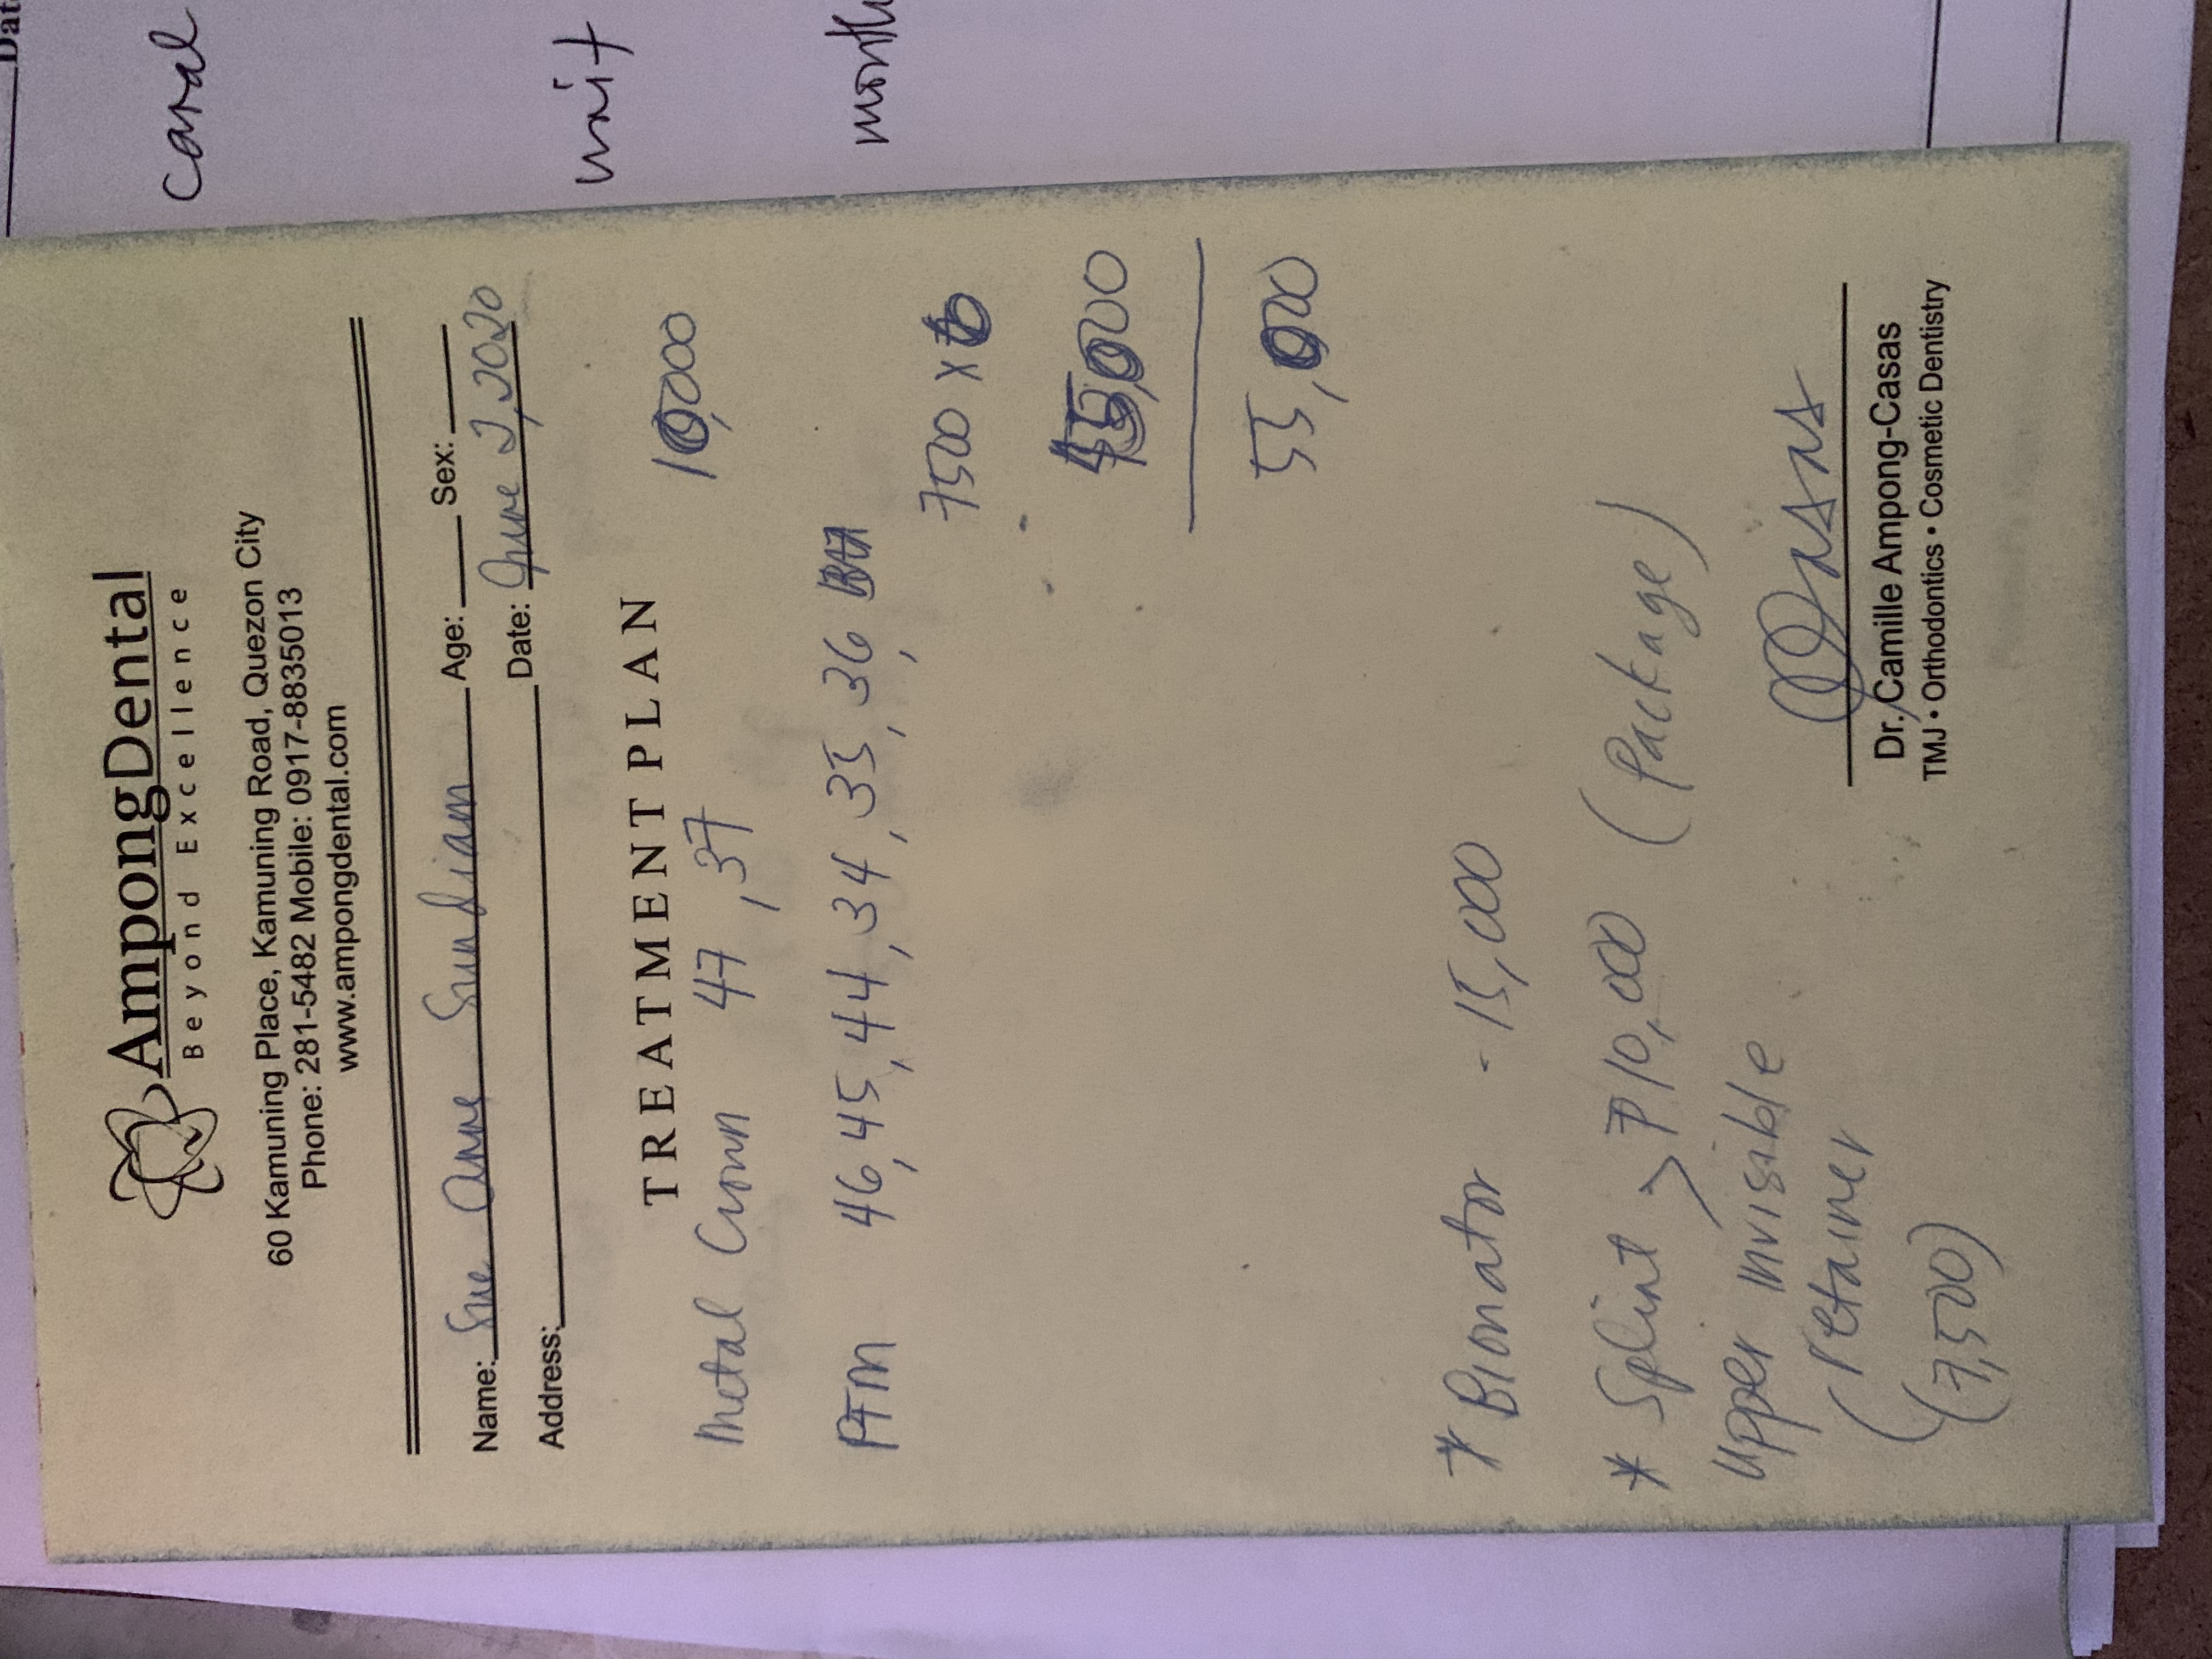 AmpongDental
Beyond Excellence
60 Kamuning Place, Kamuning Road, Quezon City
Phone: 281-5482 Mobile: 0917-8835013
www.ampongdental.com
Name: Sue Anne Sundiam Age: Sex:
Address: Date: June 2, 2020
TREATMENT PLAN
Metal Crown 47, 37 10,000
PFM 46, 45, 44, 34, 35, 36,
7500 x 6
45,000
55,000
* Bionator - 15,000
* Splint > ₱10,000 (Package)
Upper invisible
retainer
(7,500)
CCasas
Dr. Camille Ampong-Casas
TMJ • Orthodontics • Cosmetic Dentistry
Dat
canal
unit
month